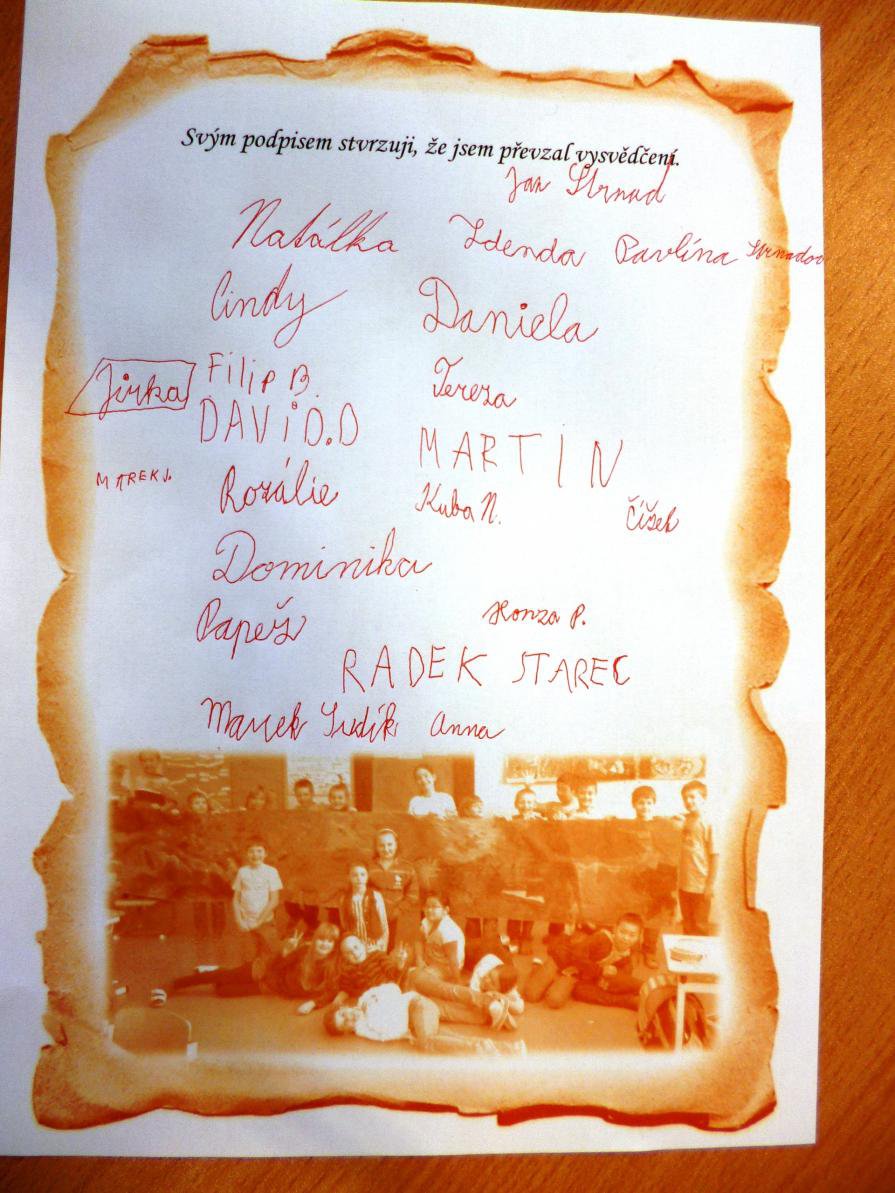 Svým podpisem stvrzuji, že jsem převzal vysvědčení.
Jan Strnad
Natálka Zdenda Pavlína Strnadov
Cindy Daniela
Jirka Filip B. Tereza
DAViD.D MARTIN
MAREK J. Rozálie Kuba N. Čížek
Dominika
Papež Honza P.
RADEK STAREC
Marek Anna